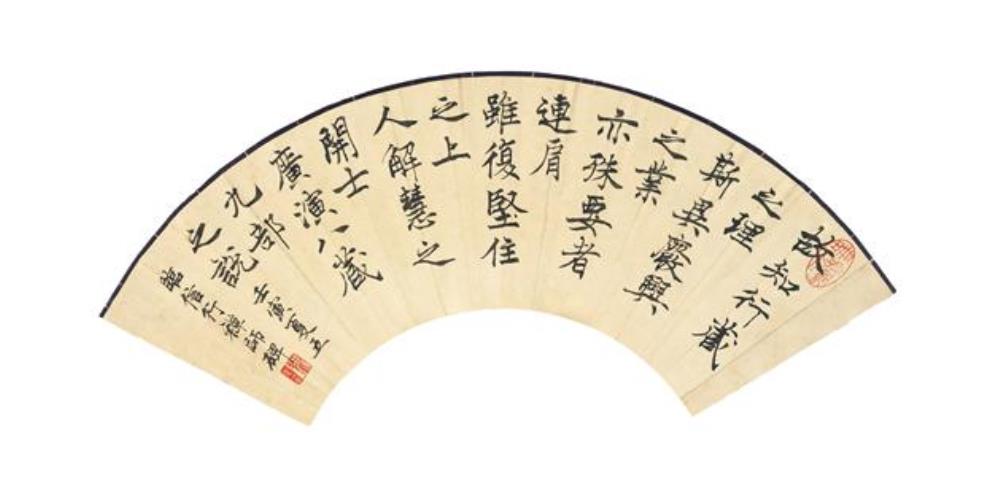 故知行藏
之理
斯異嚴興
之業
亦殊要者
連肩
雖復堅住
之上
人解慧之
開士
廣演八藏
九部
之說 壬寅夏五
臨信行禪師碑